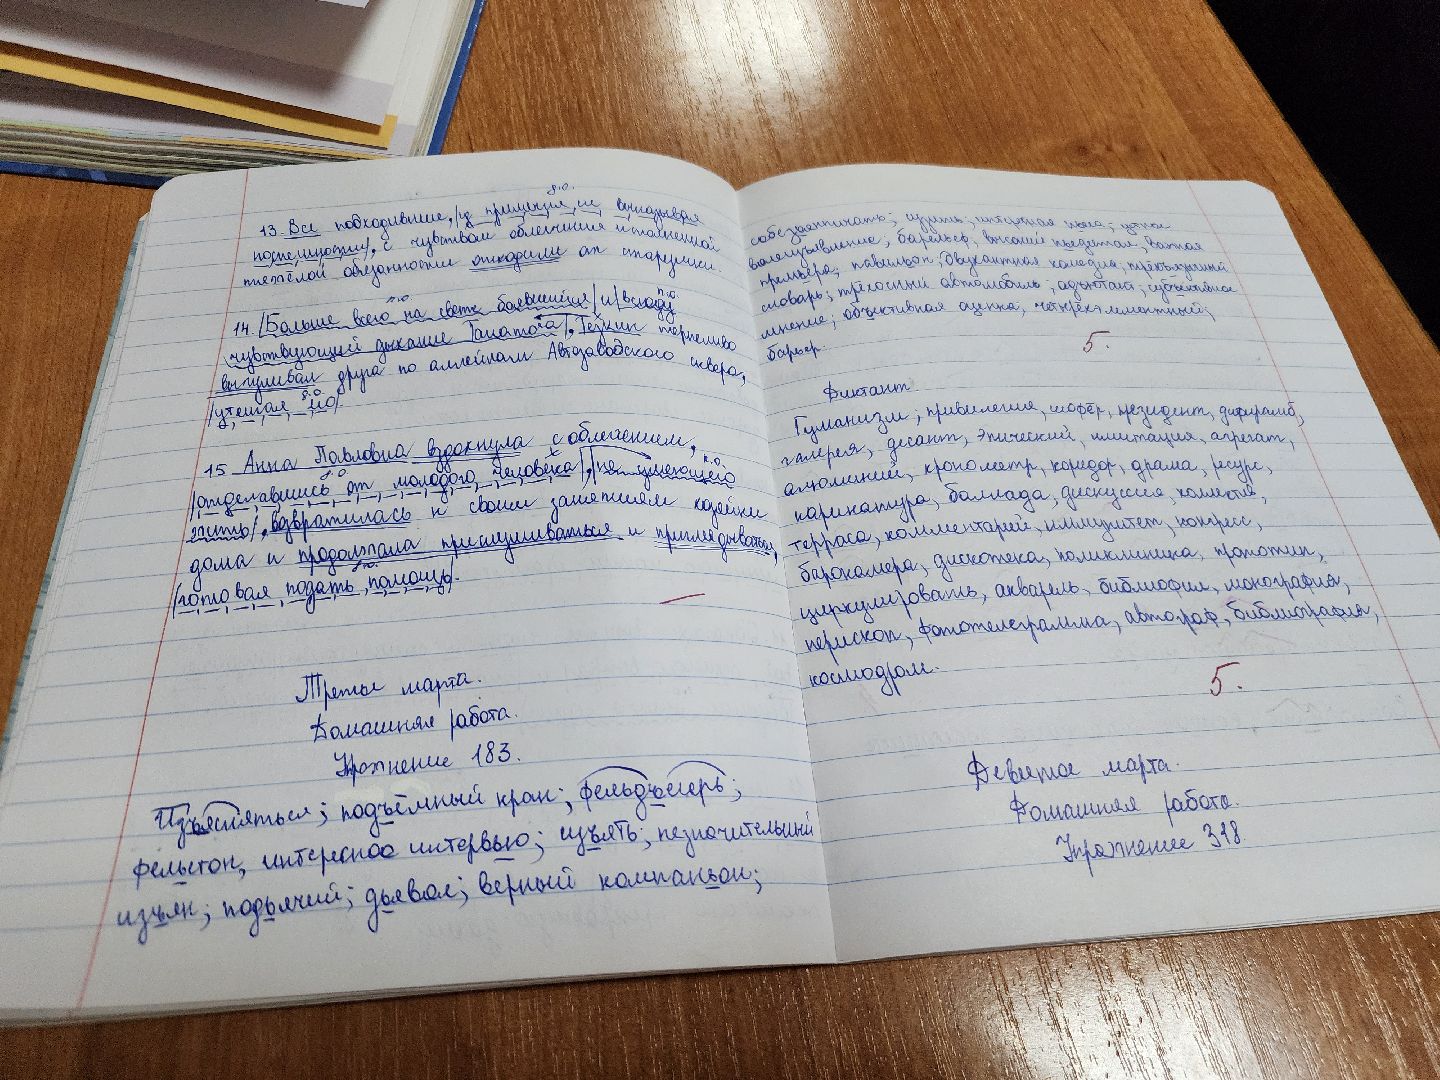 д.о.
13. Все подходившие, /из приличия не выказывая
поспешности/, с чувством облегчения исполненной
тяжёлой обязанности отходили от старушки.
п.о. п.о.
14. /Больше всего на свете боявшийся/ и /всюду
чувствующий дыхание Танатоса/, Тёзкин терпеливо
выгуливал друга по аллейкам Автозаводского сквера,
д.о.
/утешая его/.
15 Анна Павловна вздохнула с облегчением,
д.о. п.о.
/отделавшись от молодого человека/, /не умеющего
жить/, возвратилась к своим занятиям хозяйки
дома и продолжала прислушиваться и приглядываться,
д.о.
/готовая подать помощь/.
Третье марта.
Домашняя работа.
Упражнение 183.
Изъясняться; подъёмный кран; фельдъегерь;
фельетон, интересное интервью; изъять; незначительный
изъян; подьячий; дьявол; верный компаньон;
волеизъявление; барельеф, высокий пьедестал, важная
премьера; павильон; двухактная комедия, трёхъязычный
словарь; трёхосный автомобиль; адъютант; субъективное
мнение; объективная оценка, четырёхэлементный;
барьер.
5.
Диктант
Гуманизм, привилегия, шофёр, президент, дифирамб,
галерея, десант, эпический, имитация, агрегат,
алюминий, хронометр, коридор, драма, ресурс,
карикатура, баллада, дискуссия, коллектив,
терраса, комментарий, иммунитет, конгресс,
барокамера, дискотека, поликлиника, прототип,
циркулировать, акварель, библиофил, монография,
перископ, фототелеграмма, автограф, библиография,
космодром.
5.
Девятое марта.
Домашняя работа.
Упражнение 318.